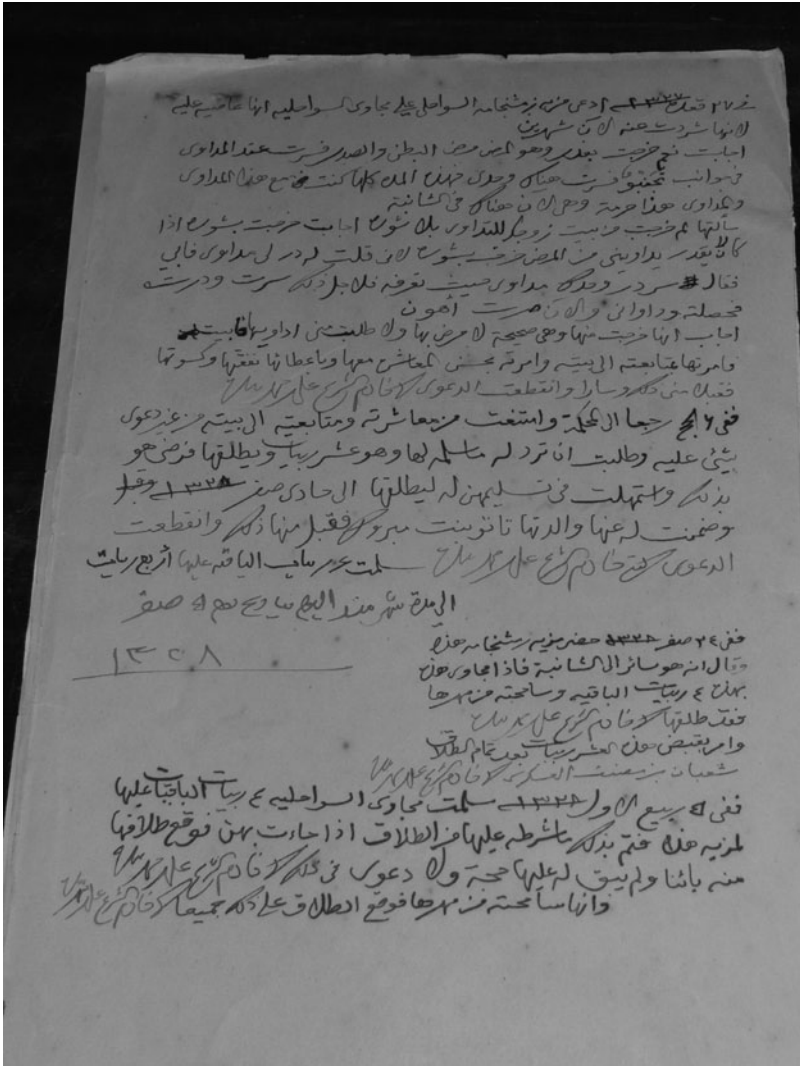 في ٢٧ قعدة ١٣٢٧ ادعى مزيه بن مشنجامه السواحلي على مجاوى السواحليه انها عاصيه عليه
لانها شردت عنه الان شهرين
اجابت نعم خرجت بعذر وهو المرض مرض البطن والصدر فسرت عند المداوى
في جوانب فسرت هناك وحدى فهذه المده كلها كنت مع هذا المداوى
والمداوى هذا حرمة وهى الان هناك فى الشانبة
سألتها لم خرجت من بيت زوجك للتداوى بلا شوره اجابت خرجت بشوره اذا
كان لا يقدر يداوينى من المرض خرجت بشوره لانى قلت له در لى مداوى فأبى
فقال سر در وحدك مداوى حيث تعرفه فلاجل ذلك سرت ودرت
فحصلته وداوانى والان صرت أهون
اجاب انها خرجت منها وهى صحيحة لا مرض بها ولا طلبت منى اداويها فأبيت
فامرتها بمتابعته الى بيته وامرته بحسن المعاشره معها وباعطائها نفقتها وكسوتها
فقبلا منى ذلك وسارا وانقطعت الدعوى كتبه خادم الشرع على بن محمد
ففى ٦ الحج رجعا الى المحكمة وامتنعت من معاشرته ومتابعتيه الى بيته من غير دعوى
بشئ عليه وطلبت ان ترد له ما سلمه لها وهو عشر ربيات ويطلقها فرضى هو
بذلك واستمهلت فى تسليمهن له ليطلقها الى حادى صفر ١٣٢٨
وضمنت له عنها والدتها تانو بنت مبروك فقبل منها ذلك وانقطعت
الدعوى كتبه خادم الشرع على بن محمد سلمت ربيات الباقيه عليها أربع ربيات
الى مدة شهر منذ اليوم صفر
١٣٢٨
ففى ٢٤ صفر ١٣٢٨ حضر مزيه بن مشنجامه هذا
وقال انه هو سائر الى الشانبة فاذا مجاوى هذه
بهذه ٤ ربيات الباقيه وسامحته من مهرها
فقد طلقها كتبه خادم الشرع على بن محمد
وامر بقبض هذه العشر ربيات بعد تمام الطلاق
شعبان بن العسكرى كتبه خادم الشرع على بن محمد
ففى ٥ ربيع الاول ١٣٢٨ سلمت مجاوى السواحليه ٤ ربيات الباقيات عليها
لمزيه هذا فتم بذلك ما شرطه عليها من الطلاق اذا جاءت بهن فوقع طلاقها
منه بائنا ولم يبق له عليها حجة ولا دعوى فى ذلك كتبه خادم الشرع على بن محمد
وانها سامحته من مهرها فوقع الطلاق على ذلك جميعا كتبه خادم الشرع على بن محمد